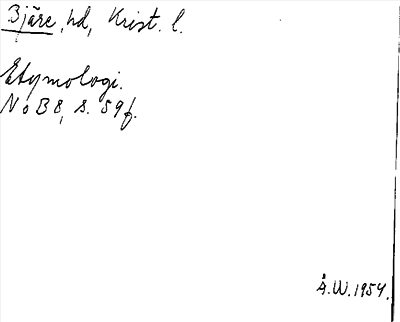 Bjäre, hd, Krist. l.
Etymologi.
NoB 8, s. 59 f.
Å.W. 1954.